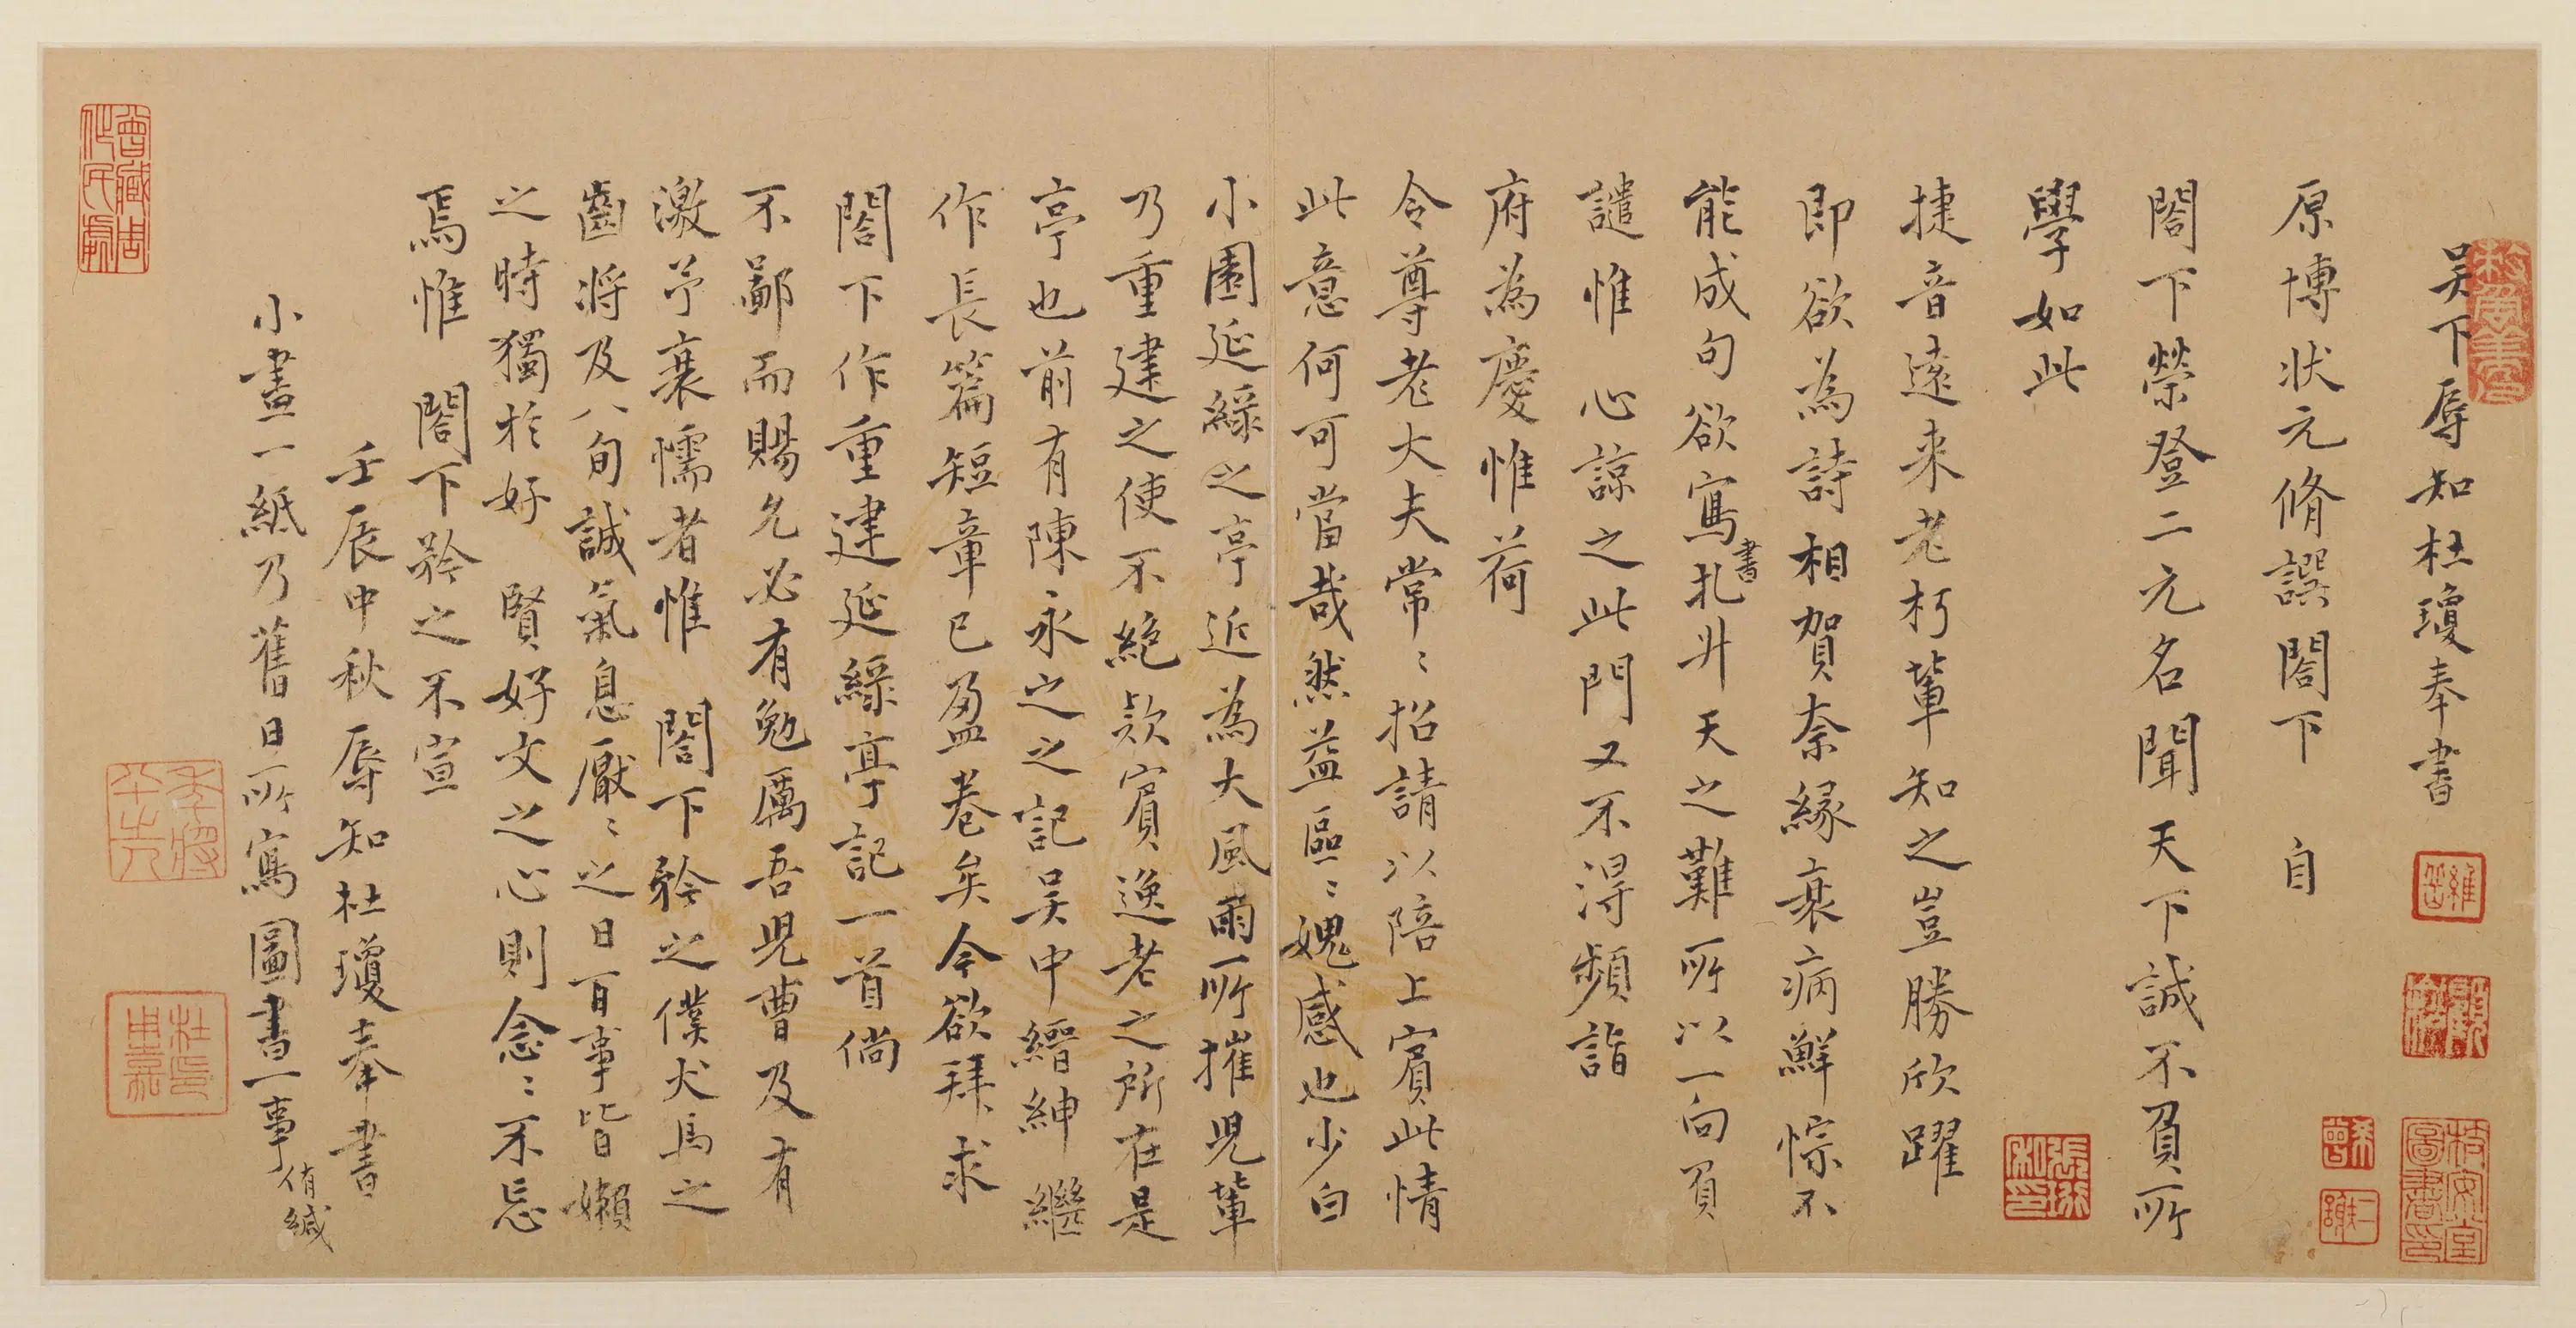 吳下辱知杜瓊奉書
原博狀元脩譔閤下　自
閤下榮登二元名聞天下誠不負所
學如此
捷音遠来老朽輩知之豈勝欣躍
即欲為詩相賀奈緣衰病鮮悰不
能成句欲寫書扎升天之難所以一向負
譴惟　心諒之此門又不得頻詣
府為慶惟荷
令尊老大夫常〻招請以陪上賓此情
此意何可當哉然益區〻媿感也少白
小園延綠之亭近為大風雨所摧児輩
乃重建之使不絕欵賓逸老之所在是
亭也前有陳永之之記吳中縉紳繼
作長篇短章已盈卷矣今欲拜求
閤下作重建延綠亭記一首倘
不鄙而賜允必有勉厲吾児曹及有
激于衰懦者惟　閤下矜之僕犬馬之
齒将及八旬誠氣息厭〻之日百事皆嬾
之時獨於好　賢好文之心則念〻不忘
焉惟　閤下矜之不宣
壬辰中秋辱知杜瓊奉書
小畫一紙乃舊日所寫圖書一事侑緘